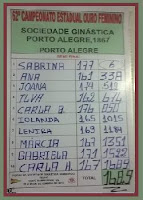 62º CAMPEONATO ESTADUAL OURO FEMININO
SOCIEDADE GINÁSTICA
PORTO ALEGRE, 1867
PORTO ALEGRE
SABRINA 177 6
ANA 161 338
JOANA 174 512
ILVA 162 674
CARLA B.
IOLANDA 165 1015
LENIRA 169 1184
MARCIA 167 1351
GABRIELA 171 1522
CARLA H. 167 1689
TOTAL 1689